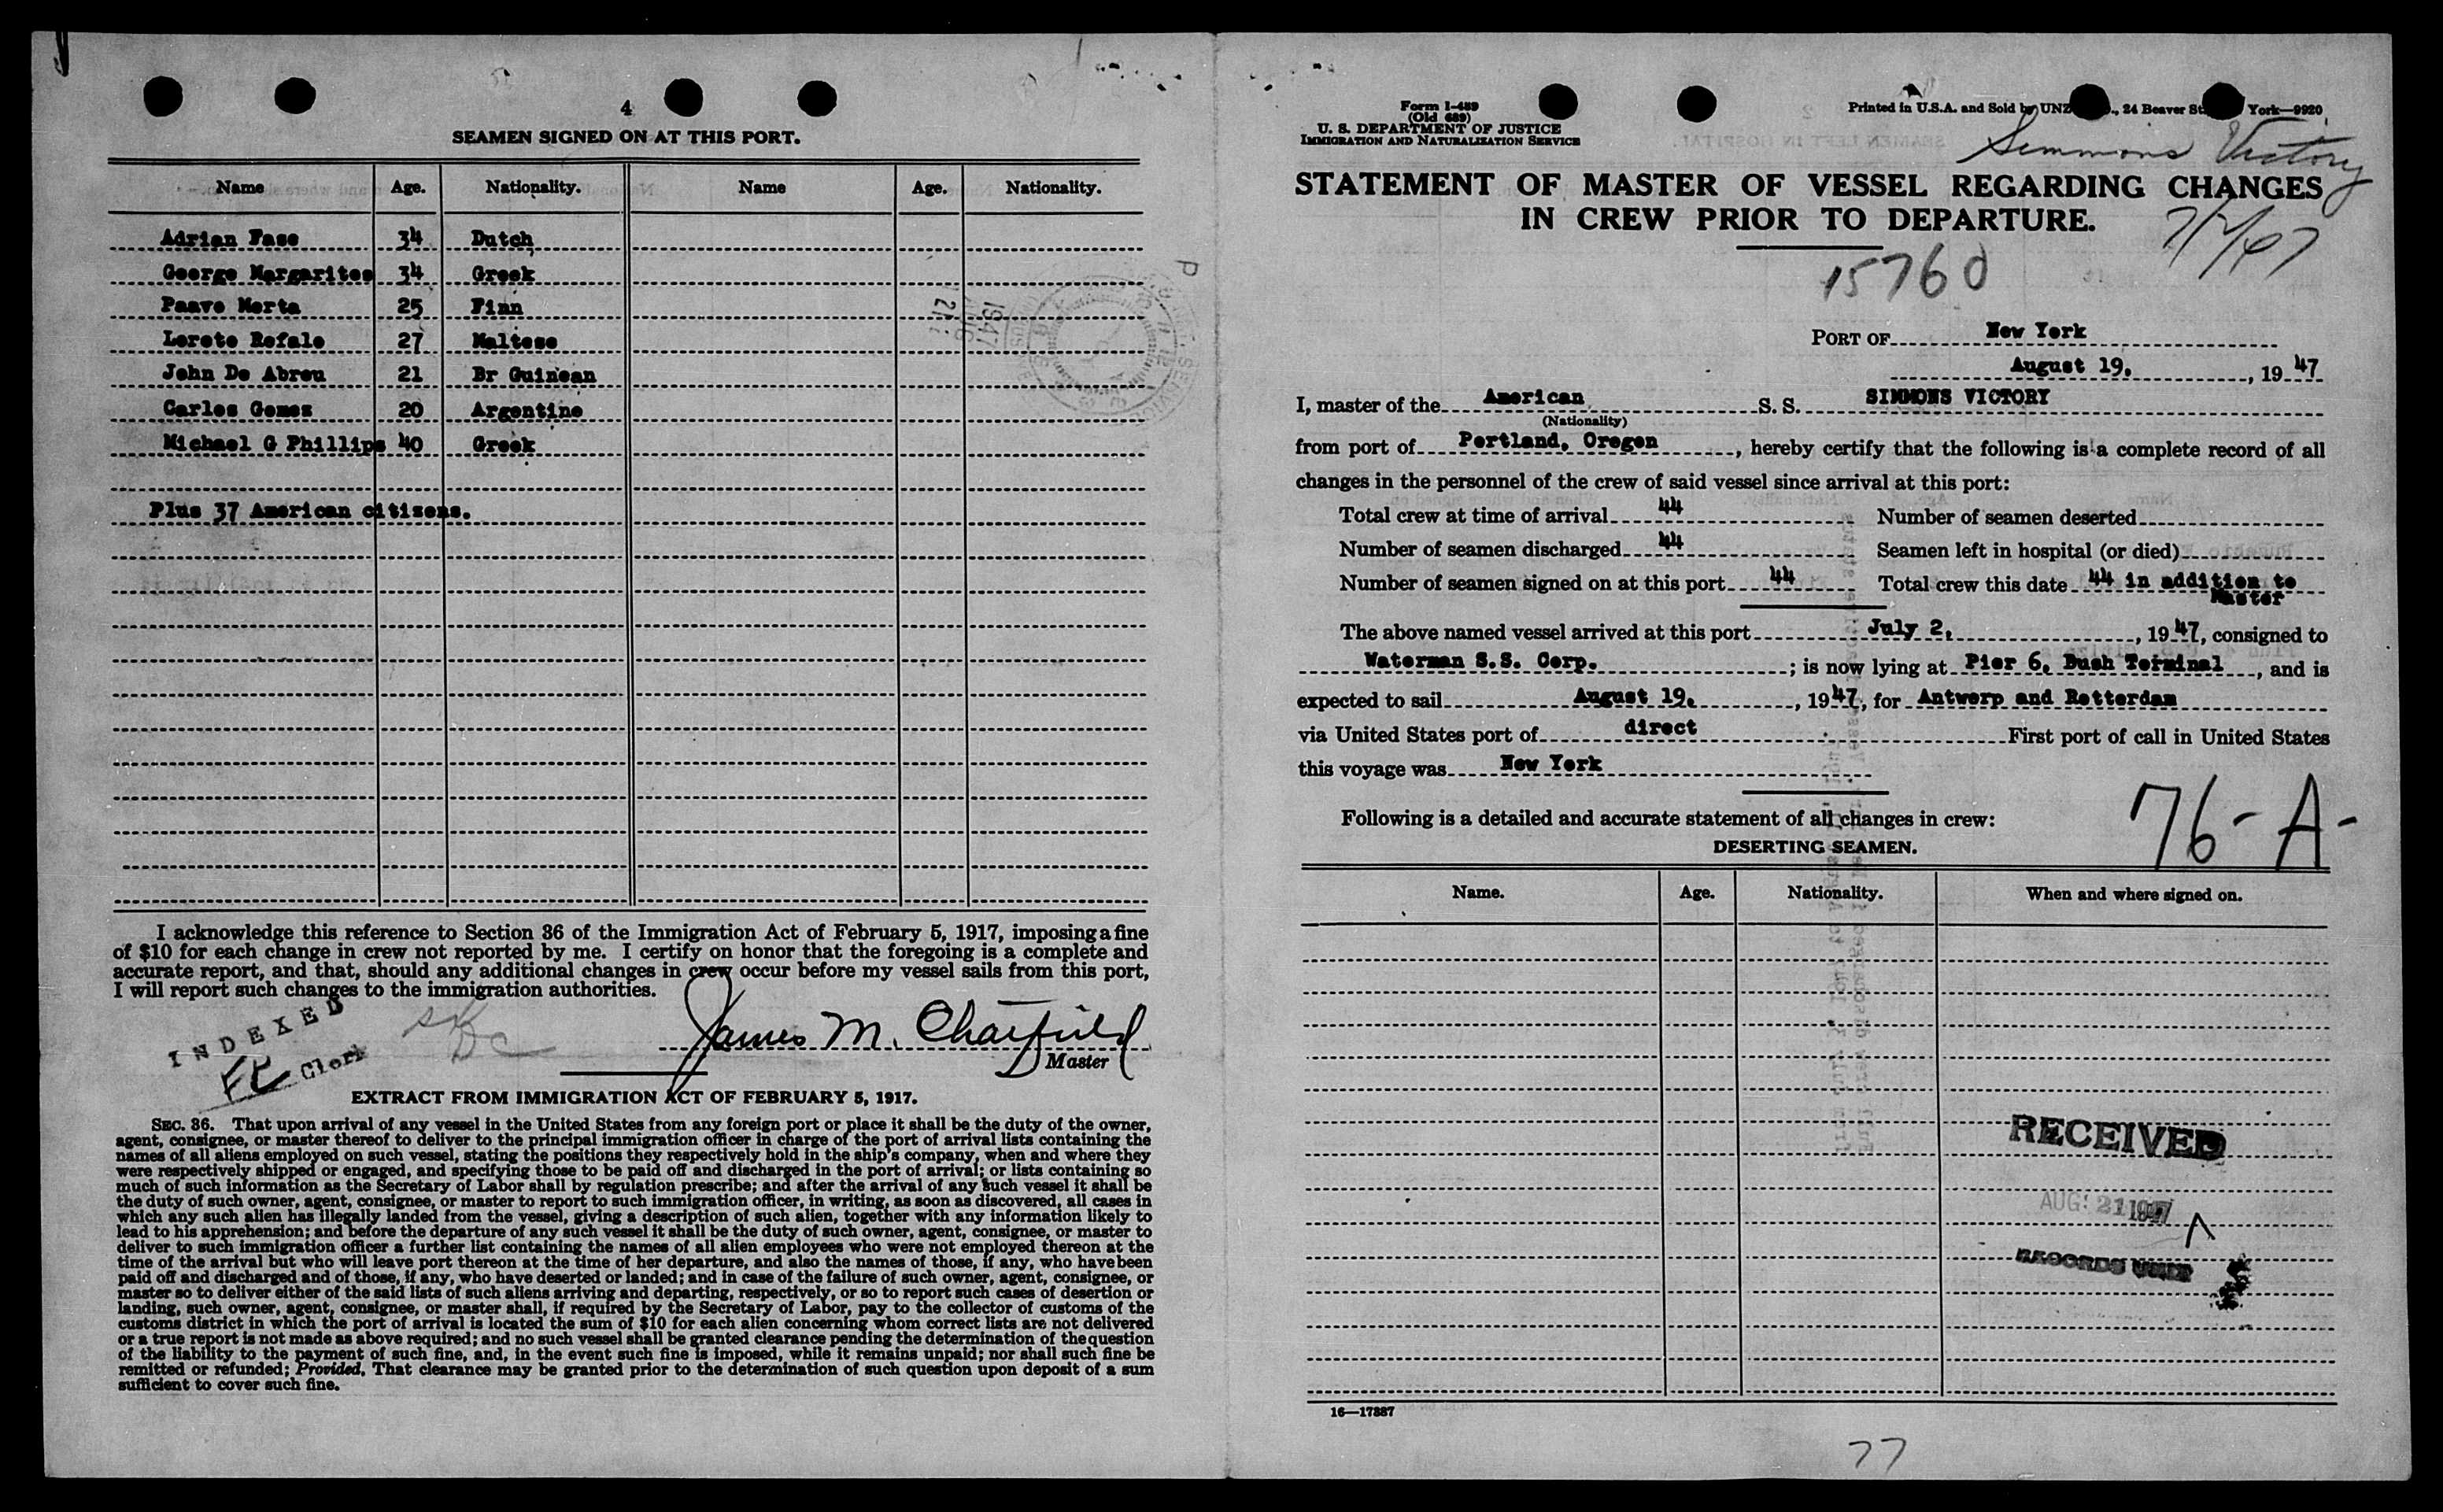 4
SEAMEN SIGNED ON AT THIS PORT.
Name Age. Nationality. Name Age. Nationality.
Adrian Fase 34 Dutch
George Margarites 34 Greek
Paavo Merta 25 Finn
Loreto Refalo 27 Maltese
John De Abreu 21 Br Guinean
Carlos Gomez 20 Argentine
Michael G Phillips 40 Greek
Plus 37 American citizens.
I acknowledge this reference to Section 36 of the Immigration Act of February 5, 1917, imposing a fine
of $10 for each change in crew not reported by me. I certify on honor that the foregoing is a complete and
accurate report, and that, should any additional changes in crew occur before my vessel sails from this port,
I will report such changes to the immigration authorities.
INDEXED
Clerk
James M. Chatfield
Master
EXTRACT FROM IMMIGRATION ACT OF FEBRUARY 5, 1917.
SEC. 36. That upon arrival of any vessel in the United States from any foreign port or place it shall be the duty of the owner,
agent, consignee, or master thereof to deliver to the principal immigration officer in charge of the port of arrival lists containing the
names of all aliens employed on such vessel, stating the positions they respectively hold in the ship's company, when and where they
were respectively shipped or engaged, and specifying those to be paid off and discharged in the port of arrival; or lists containing so
much of such information as the Secretary of Labor shall by regulation prescribe; and after the arrival of any such vessel it shall be
the duty of such owner, agent, consignee, or master to report to such immigration officer, in writing, as soon as discovered, all cases in
which any such alien has illegally landed from the vessel, giving a description of such alien, together with any information likely to
lead to his apprehension; and before the departure of any such vessel it shall be the duty of such owner, agent, consignee, or master to
deliver to such immigration officer a further list containing the names of all alien employees who were not employed thereon at the
time of the arrival but who will leave port thereon at the time of her departure, and also the names of those, if any, who have been
paid off and discharged and of those, if any, who have deserted or landed; and in case of the failure of such owner, agent, consignee, or
master so to deliver either of the said lists of such aliens arriving and departing, respectively, or so to report such cases of desertion or
landing, such owner, agent, consignee, or master shall, if required by the Secretary of Labor, pay to the collector of customs of the
customs district in which the port of arrival is located the sum of $10 for each alien concerning whom correct lists are not delivered
or a true report is not made as above required; and no such vessel shall be granted clearance pending the determination of the question
of the liability to the payment of such fine, and, in the event such fine is imposed, while it remains unpaid; nor shall such fine be
remitted or refunded; Provided, That clearance may be granted prior to the determination of such question upon deposit of a sum
sufficient to cover such fine.
Form I-489
(Old 689)
U. S. DEPARTMENT OF JUSTICE
IMMIGRATION AND NATURALIZATION SERVICE
Printed in U.S.A. and Sold by UNZ , 24 Beaver St. York—9920
Simmons Victory
STATEMENT OF MASTER OF VESSEL REGARDING CHANGES
IN CREW PRIOR TO DEPARTURE.
7/2/47
15760
PORT OF New York
August 19, , 19 47
I, master of the American S. S. SIMMONS VICTORY
(Nationality)
from port of Portland, Oregon , hereby certify that the following is a complete record of all
changes in the personnel of the crew of said vessel since arrival at this port:
Total crew at time of arrival 44 Number of seamen deserted
Number of seamen discharged 44 Seamen left in hospital (or died)
Number of seamen signed on at this port 44 Total crew this date 44 in addition to
Master
The above named vessel arrived at this port July 2, , 19 47, consigned to
Waterman S.S. Corp. ; is now lying at Pier 6, Bush Terminal , and is
expected to sail August 19, , 19 47, for Antwerp and Rotterdam
via United States port of direct First port of call in United States
this voyage was New York
76-A-
Following is a detailed and accurate statement of all changes in crew:
DESERTING SEAMEN.
Name. Age. Nationality. When and where signed on.
RECEIVED
AUG 21 1947
RECORDS UNIT
16—17887
77